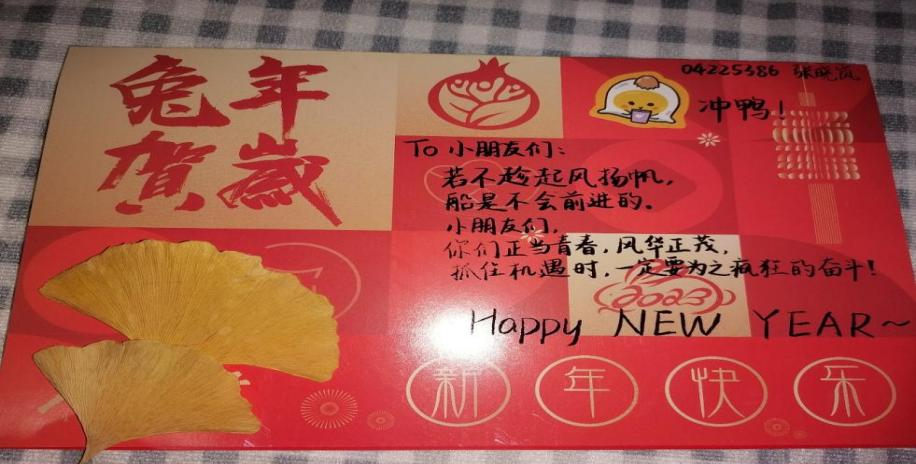 兔年
賀歲
04225386 张晓岚
冲鸭!
To 小朋友们:
若不趁起风扬帆,
船是不会前进的。
小朋友们,
你们正当青春,风华正茂,
抓住机遇时,一定要为之疯狂的奋斗!
2023
Happy NEW YEAR~
新年快乐